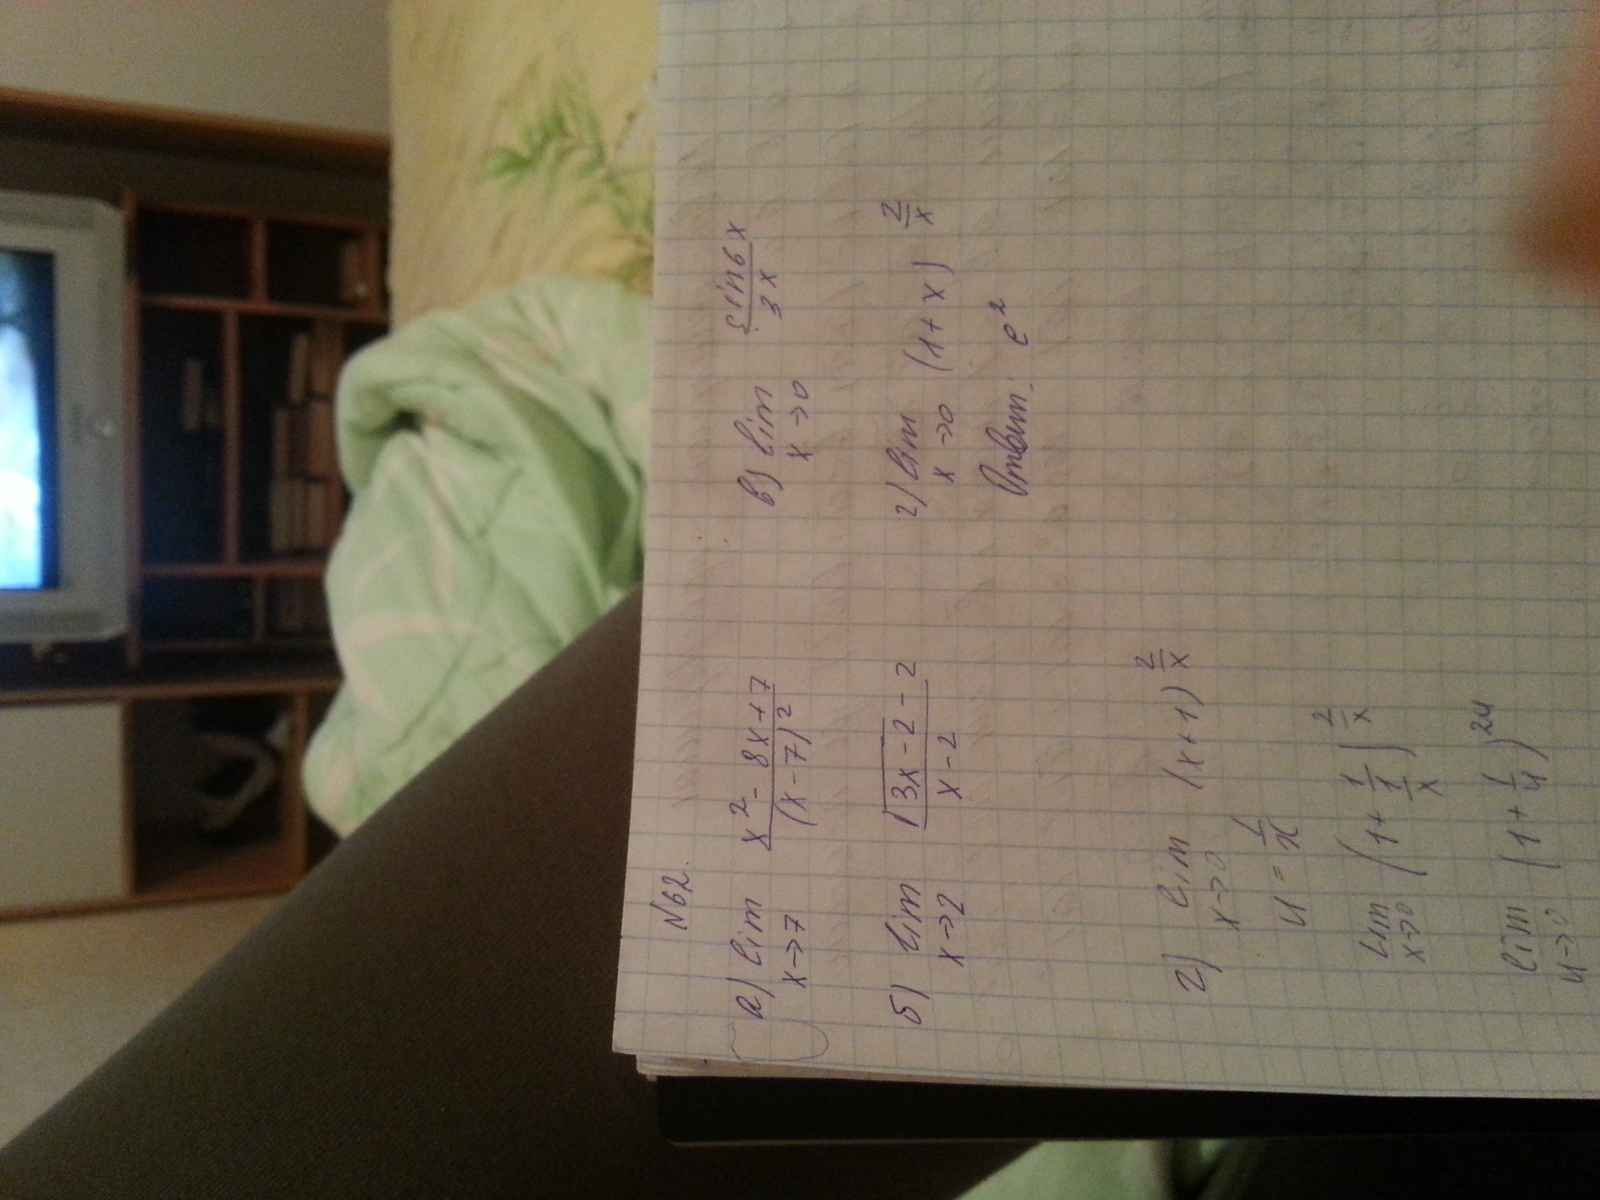 N62.
а) lim x→7 (x² - 8x+7)/(x-7)²
в) lim x→0 sin6x/3x
б) lim x→2 (√(3x-2) - 2)/(x-2)
г) lim x→0 (1+x)^(2/x)
Ответ: e²
г) lim x→0 (x+1)^(2/x)
u = 1/x
lim x→0 (1+ 1/(1/x))^(2/x)
lim u→0 (1+ 1/u)^(2u)